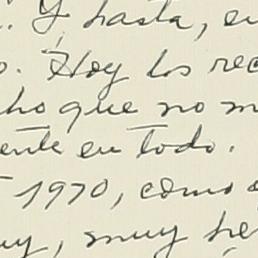 . Y hasta, en
o. Hoy los rec
cho que no m
ente en todo.
1970, como
uy, muy he